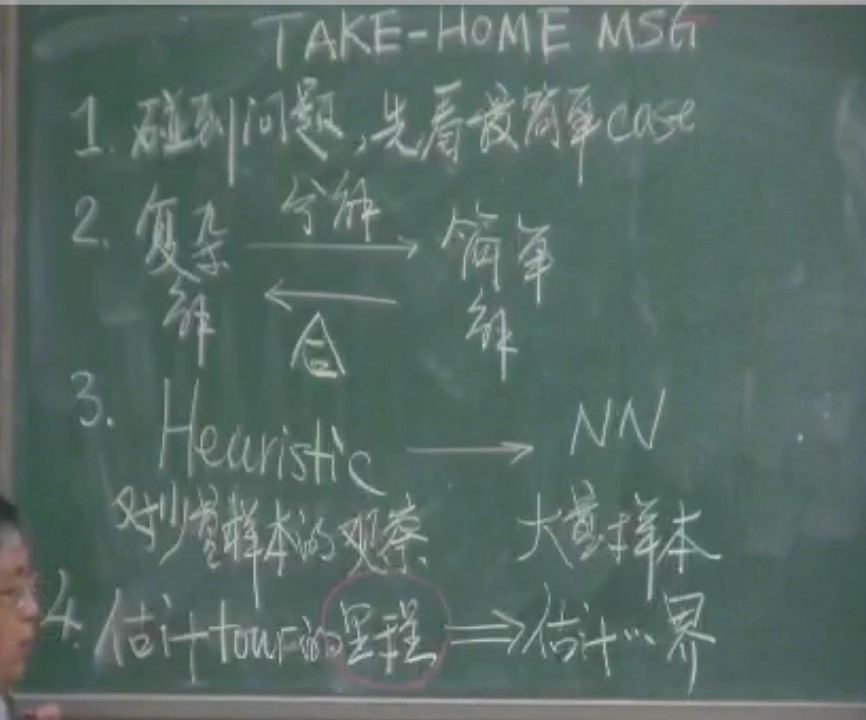 TAKE-HOME MSG
1. 碰到问题,先看最简单case
2. 复杂 分解 简单
解 合 解
3. Heuristic → NN
对少量样本的观察 大量样本
4. 估计tour的里程 ⇒ 估计 界